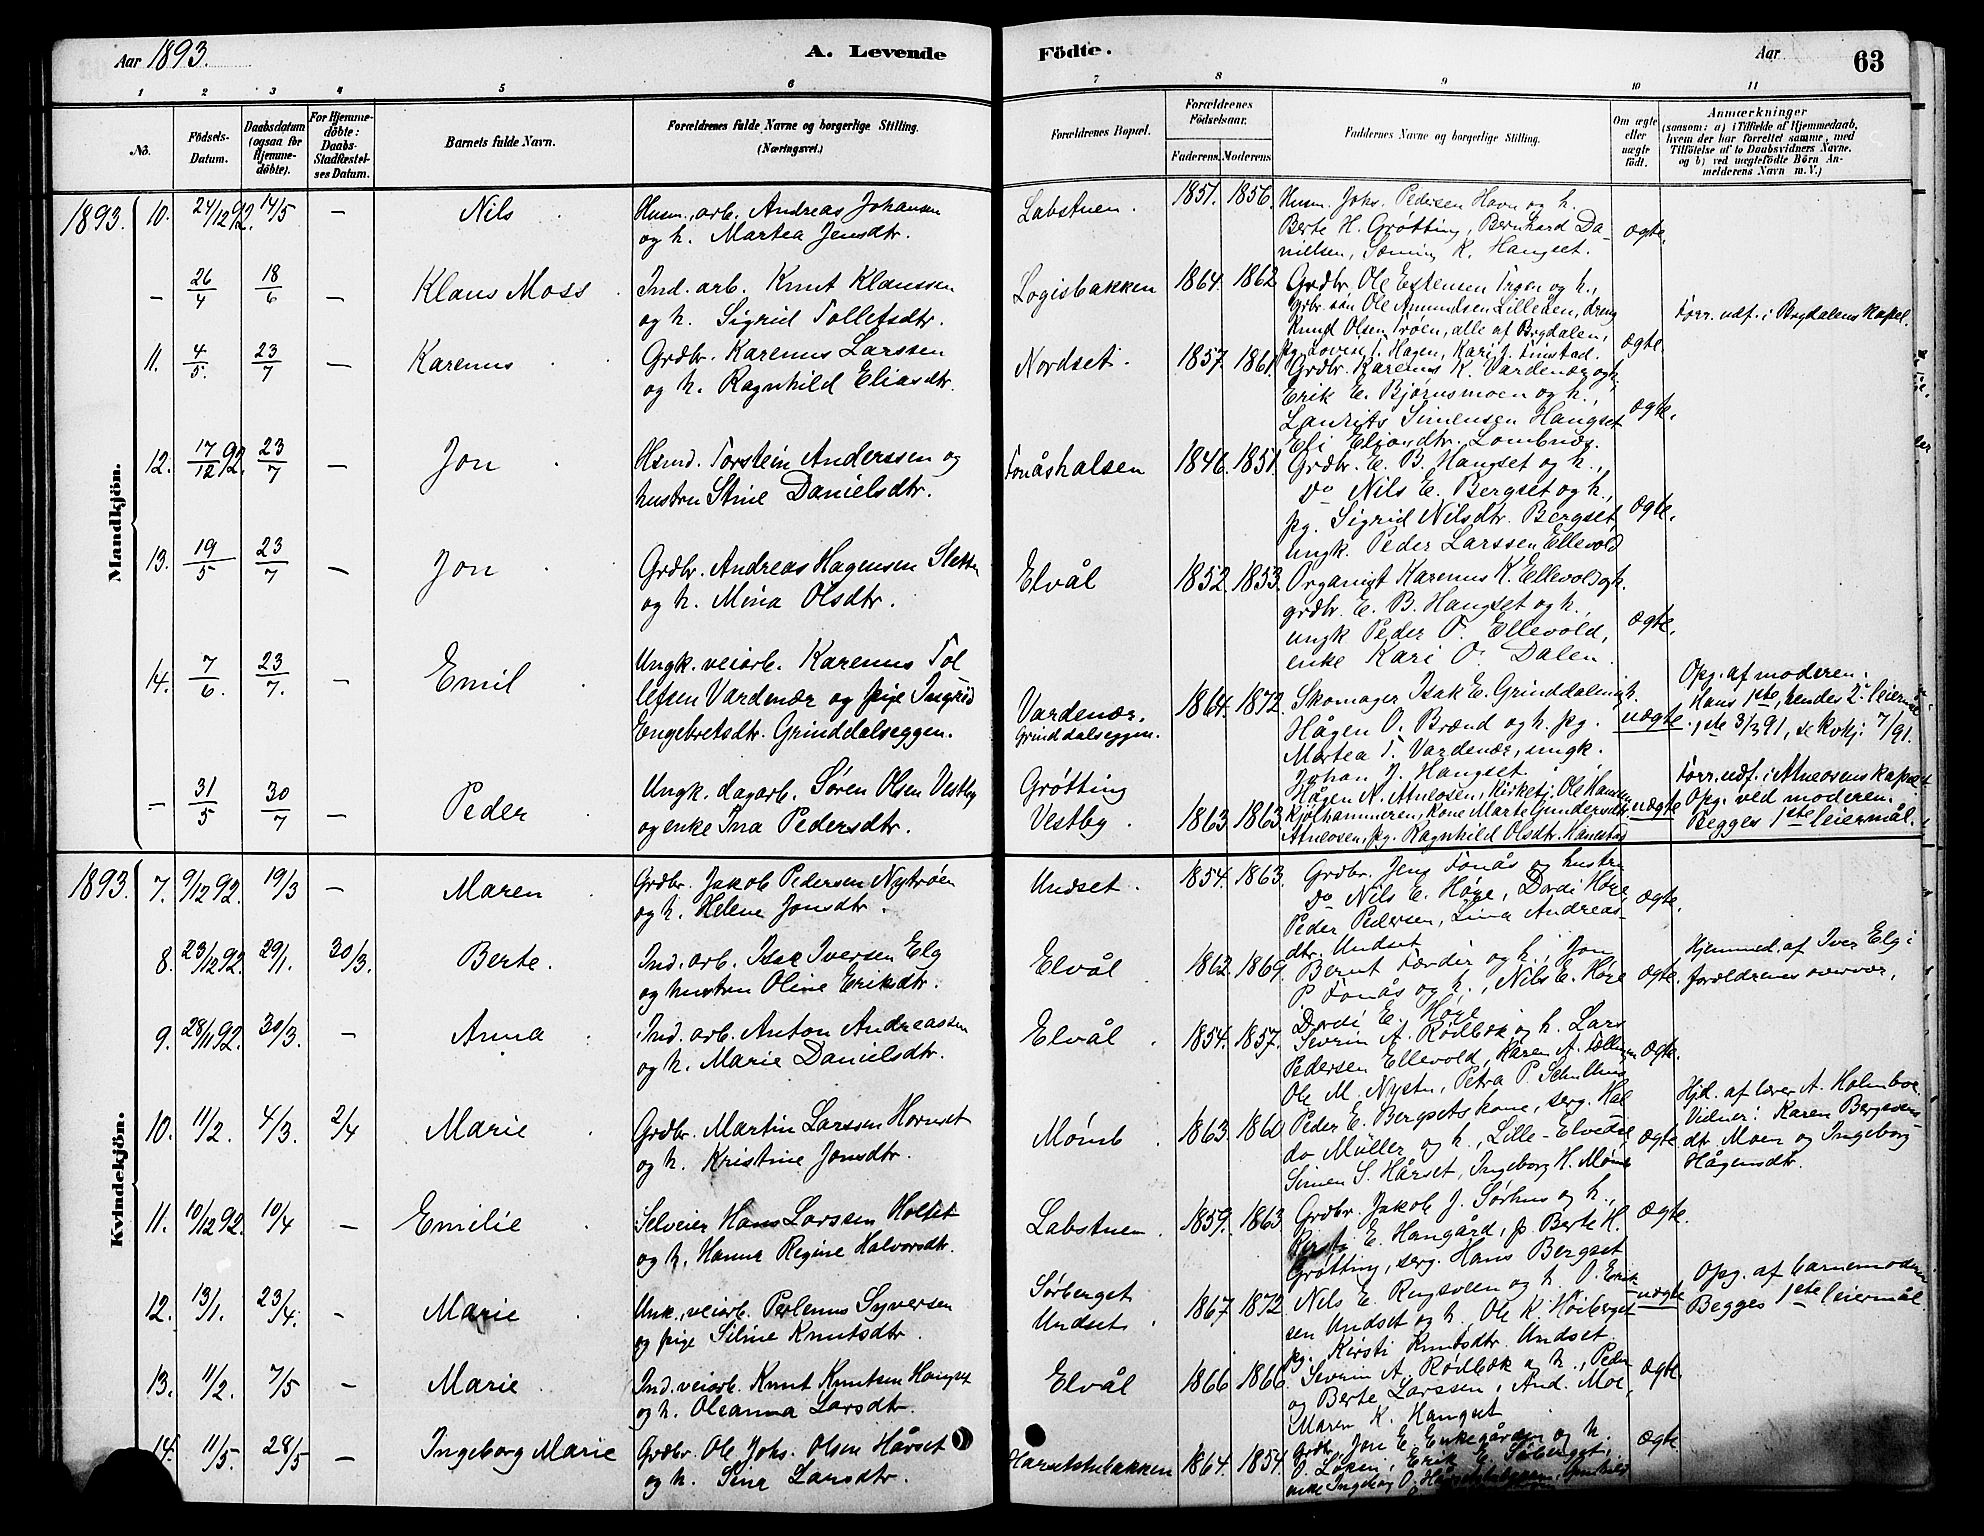 Aar 1893.
A. Levende
Födte.
Aar
63
1 2 3 4 5 6 7 8 9 10 11
No.
Födsels-
Datum.
Daabsdatum
(ogsaa for
Hjemme-
döbte).
For Hjemme-
döbte:
Daabs-
Stadfæstel-
ses Datum.
Barnets fulde Navn.
Forældrenes fulde Navne og borgerlige Stilling.
(Næringsvei.)
Forældrenes Bopæl.
Forældrenes
Födselsaar.
Faderens. Moderens.
Faddernes Navne og borgerlige Stilling.
Om ægte
eller
uægte
födt.
Anmærkninger
(saasom: a) i Tilfælde af Hjemmedaab,
hvem der har forrettet samme, med
Tilföielse af to Daabsvidners Navne,
og b) ved uægtefödte Börn An-
melderens Navn m. V.)
Mandkjön.
1893. 10. 24/12 92. 14/5 — Nils
Husm. arb. Andreas Johansen
og h. Martea Jensdtr.
Labstuen. 1851. 1856.
Husm. Johs. Pedersen Havn og h.
Berte H. Grøtting, Bernhard Da-
nielsen, K. Hangset.
ægte.
— 26/4 18/6 — Klaus Moss
Ind. arb. Knut Klaussen
og h. Sigrid Tollefsdtr.
Logisbakken 1864. 1862
Grdbr. Ole Estensen Trøen og h.,
grbr. søn Ole Amundsen Lilleøen, dreng
Knud Olsen Trøen, alle af Brydalen,
pg. Lovise T. Hagen, Kari J. Finstad.
ægte
Forr. udf. i Brydalens kapel.
11. 4/5. 23/7 — Karenus
Grdbr. Karenus Larssen
og h. Ragnhild Eliasdtr.
Nordset. 1857. 1861.
Grdbr. Karenus K. Vardenær og h.
Erik E. Bjørnsmoen og h.,
Laurits Simensen Hangset
Eli Eliasdtr. Lombnæs.
ægte.
12. 17/12 92. 23/7 — Jon
Hsmd. Torstein Anderssen og
hustru Stine Danielsdtr.
Fonåshalsen 1846. 1851.
Grdbr. E. B. Hangset og h.,
Do Nils E. Bergset og h.,
pg. Sigrid Nilsdtr. Bergset,
Ungk. Peder Larssen Ellevold
ægte.
13. 19/5 23/7 — Jon
Grdbr. Andreas Hagensen Sletten
og h. Mina Olsdtr.
Elvål 1852. 1853.
Organist Karenus K. Ellevold og h.
grdbr. E. B. Hangset og h.,
ungk Peder O. Ellevold,
enke Kari O. Dalen.
ægte.
14. 7/6. 23/7. — Emil
Ungk. veiarb. Karenus Tol
lefsen Vardenær og pige Ingrid
Engebretsdtr. Grinddalseggen.
Vardenær.
Grinddalseggen.
1864. 1872.
Skomager Isak E. Grinddalen og h.
Hågen O. Brænd og h. pg.
Martea T. Vardenær, ungk.
Johan J. Hangset.
uægte
Opg. af moderen.
Hans 1ste, hendes 2. leiermål
1ste 3/3 91, se kvkj: 7/91.
— 31/5 30/7 — Peder
Ungk. dagarb. Søren Olsen Vestby
og enke Ina Pedersdtr.
Grøtting
Vestby. 1863. 1863
Hågen N. Atneosen, Kirketj. Ole Hansen
Kjølhammeren, Kone Marte Gundersdtr.
Atneosen, pg. Ragnhild Olsdtr. Kanestad
uægte
Forr. udf. i Atneosens kapel
Opg. ved moderen.
Begges 1ste leiermål.
Kvindekjön.
1893. 7. 9/12 92. 19/3 — Maren
Grdbr. Jakob Pedersen Nytrøen
og h. Helene Jonsdtr.
Undset. 1854. 1863.
Grdbr. Jens Fonås og hustru
Do Nils E. Høye, Dordi Høye
Peder Pedersen, Lina Andreas-
dtr. Undset
ægte.
8. 23/12 92. 29/1. 30/3. Berte.
Ind. arb. Isak Iversen Elg
og hustru Oline Eriksdtr.
Elvål 1862. 1869.
Bernt Fordir og h., Jon
P. Fonås og h., Nils E. Høye
Dordi E. Høye
ægte.
Hjemmed. af Iver Elg i
forældrenes overvær,
9. 28/11 92. 30/3. — Anna
Ind. arb. Anton Andreassen
og h. Marie Danielsdtr.
Elvål. 1854. 1857.
Sevrin A. Rødbæk og h. Lars
Pedersen Ellevold, Karen A.
Ole M. Nystu, Petra P.
ægte.
10. 11/2. 4/3. 2/4 Marie
Grdbr. Martin Larssen Hornset
og h. Kristine Jonsdtr.
Mømb. 1863. 1860
Peder E. Bergsets kone, serg. Hal
do Müller og h., Lille-Elvedal
Simen S. Hårset, Ingeborg H. Mømb
ægte
Hjd. af lærer A. Holmboe
Vidner: Karen Bergesens
dt. Moen og Ingeborg
Hågensdtr.
11. 10/12 92. 10/4 — Emilie
Selveier Hans Larssen Holset
og h. Hanna Regine Halvorsdtr.
Labstuen. 1859. 1863
Grdbr. Jakob J. Sørhus og h.,
Kersti E. Hangård, p. Berte H.
Grøtting, serg. Hans Bergset
ægte.
12. 13/1. 23/4. — Marie
Unk. veiarb. Perlenus Syversen
og pige Siline Knutsdtr.
Sørberget
Undset. 1867. 1872
Nils E. Ringsveen og h. O. Erik
sen Undset og h. Ole K. Høiberget
pg. Kirsti Knutsdtr. Undset
uægte
Opg. af barnemoderen
Begges 1ste leiermål
13. 11/2. 7/5 — Marie
Ind. veiarb. Knut Knutsen Hangset
og h. Oleanna Larsdtr.
Elvål 1866 1866
Sevrin A. Rødbæk og h., Peder
og Berte Larssen, And. Moe,
Maren K. Hangset
ægte.
14. 11/5. 28/5 — Ingeborg Marie
Grdbr. Ole Johs. Olsen Hårset
og h. Sina Larsdtr.
Hårsetstubakken 1864. 1854.
Grdb. Jon E. Enkegården og h.
O. Løken, Erik E. Søberget,
enke Ingeborg O.
ægte